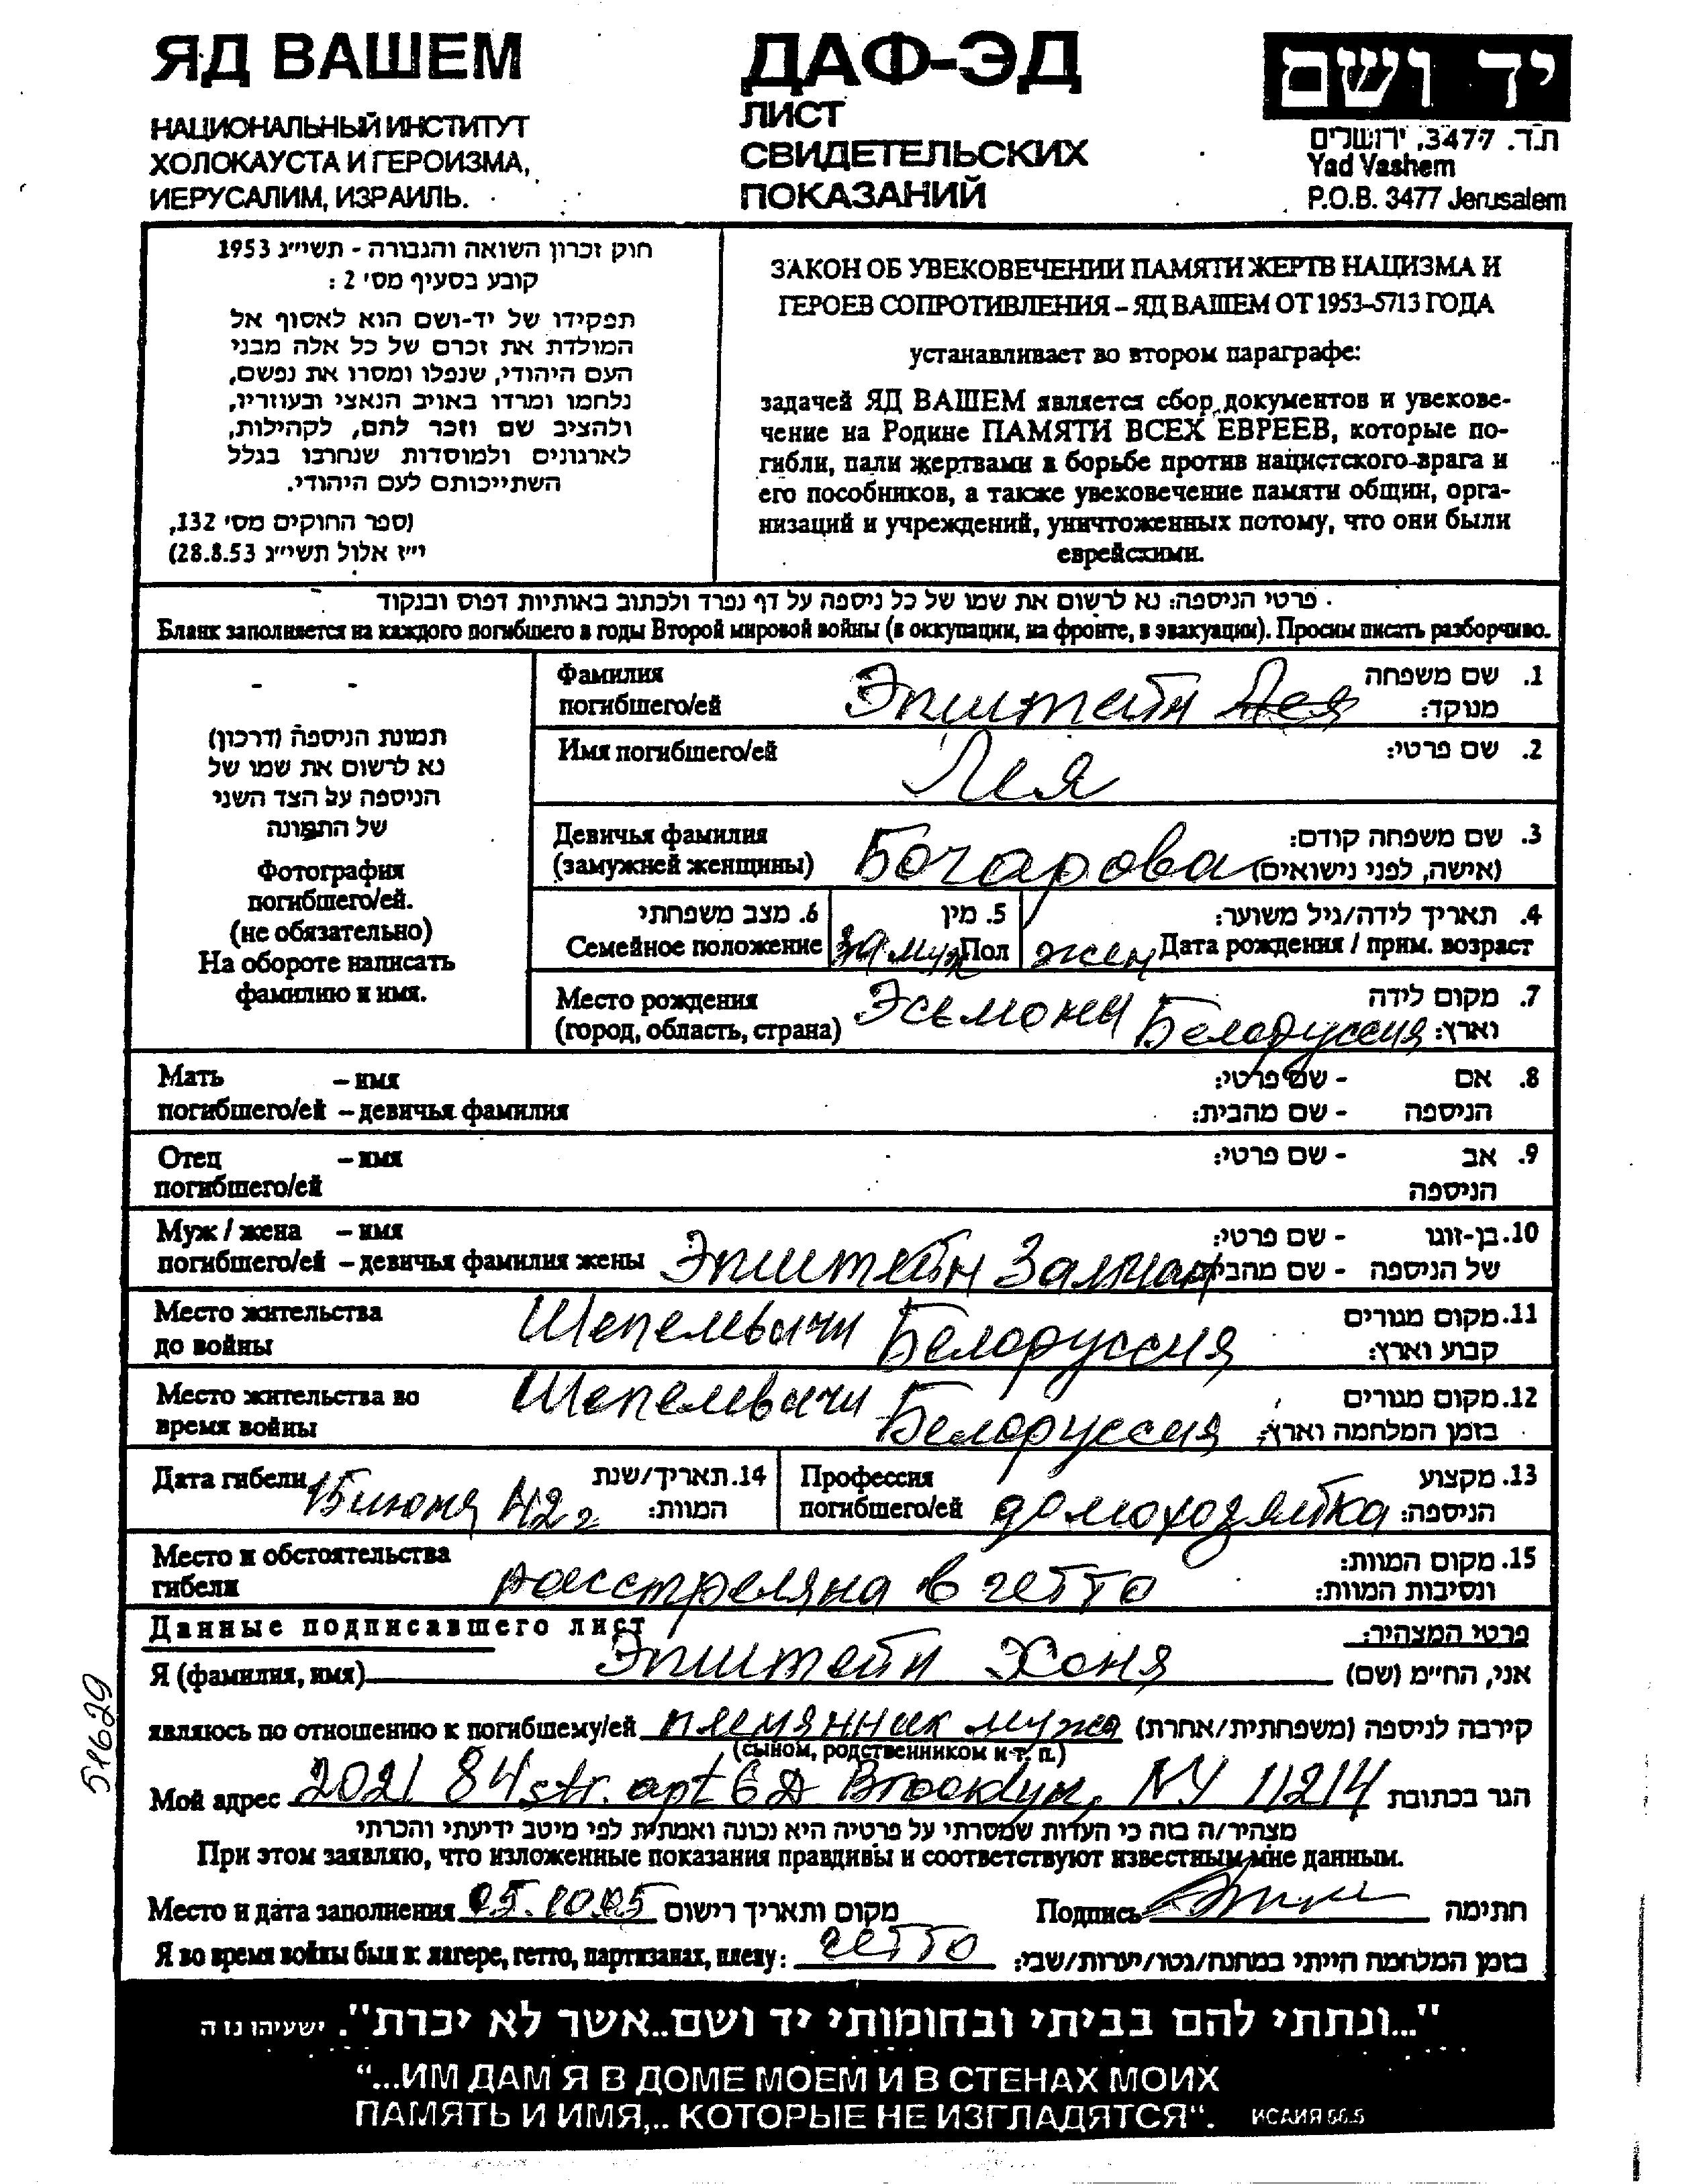 ЯД ВАШЕМ
НАЦИОНАЛЬНЫЙ ИНСТИТУТ
ХОЛОКАУСТА И ГЕРОИЗМА,
ИЕРУСАЛИМ, ИЗРАИЛЬ.
ДАФ-ЭД
ЛИСТ
СВИДЕТЕЛЬСКИХ
ПОКАЗАНИЙ
יד ושם
ת.ד. 3477, ירושלים
Yad Vashem
P.O.B. 3477 Jerusalem
חוק זכרון השואה והגבורה - תשי״ג 1953
קובע בסעיף מס׳ 2 :
תפקידו של יד-ושם הוא לאסוף אל
המולדת את זכרם של כל אלה מבני
העם היהודי, שנפלו ומסרו את נפשם,
נלחמו ומרדו באויב הנאצי ובעוזריו,
ולהציב שם וזכר להם, לקהילות,
לארגונים ולמוסדות שנחרבו בגלל
השתייכותם לעם היהודי.
(ספר החוקים מס׳ 132,
י״ז אלול תשי״ג 28.8.53)
ЗАКОН ОБ УВЕКОВЕЧЕНИИ ПАМЯТИ ЖЕРТВ НАЦИЗМА И
ГЕРОЕВ СОПРОТИВЛЕНИЯ – ЯД ВАШЕМ ОТ 1953–5713 ГОДА
устанавливает во втором параграфе:
задачей ЯД ВАШЕМ является сбор документов и увекове-
чение на Родине ПАМЯТИ ВСЕХ ЕВРЕЕВ, которые по-
гибли, пали жертвами в борьбе против нацистского врага и
его пособников, а также увековечение памяти общин, орга-
низаций и учреждений, уничтоженных потому, что они были
еврейскими.
פרטי הניספה: נא לרשום את שמו של כל ניספה על דף נפרד ולכתוב באותיות דפוס ובנקוד
Бланк заполняется на каждого погибшего в годы Второй мировой войны (в оккупации, на фронте, в эвакуации). Просим писать разборчиво.
תמונת הניספה (דרכון)
נא לרשום את שמו של
הניספה על הצד השני
של התמונה
Фотография
погибшего/ей.
(не обязательно)
На обороте написать
фамилию и имя.
Фамилия Эпштейн Лея 1. שם משפחה
погибшего/ей מנוקד:
Имя погибшего/ей Лея 2. שם פרטי:
Девичья фамилия Бочарова 3. שם משפחה קודם:
(замужней женщины) (אישה, לפני נישואים)
6. מצב משפחתי 5. מין 4. תאריך לידה/גיל משוער:
Семейное положение замуж Пол жен Дата рождения / прим. возраст
Место рождения Эсьмоны Белоруссия 7. מקום לידה
(город, область, страна) וארץ:
Мать – имя - שם פרטי: 8. אם
погибшего/ей – девичья фамилия - שם מהבית: הניספה
Отец – имя - שם פרטי: 9. אב
погибшего/ей הניספה
Муж / жена – имя - שם פרטי: 10. בן-זוגו
погибшего/ей – девичья фамилия жены Эпштейн Залман - שם מהבית של הניספה
Место жительства Шепелевичи Белоруссия 11. מקום מגורים
до войны קבוע וארץ:
Место жительства во Шепелевичи Белоруссия 12. מקום מגורים
время войны בזמן המלחמה וארץ:
Дата гибели 15 июня 42 г 14. תאריך/שנת המוות:
Профессия 13. מקצוע
погибшего/ей домохозяйка הניספה:
Место и обстоятельства 15. מקום המוות:
гибели расстреляна в гетто ונסיבות המוות:
Данные подписавшего лист פרטי המצהיר:
Я (фамилия, имя) Эпштейн Хоня אני, הח״מ (שם)
являюсь по отношению к погибшему/ей племянник мужа קירבה לניספה (משפחתית/אחרת)
(сыном, родственником и т. п.)
Мой адрес 2021 84 str. apt 6A Brooklyn, NY 11214 הגר בכתובת
מצהיר/ה בזה כי העדות שמסרתי על פרטיה היא נכונה ואמתית לפי מיטב ידיעתי והכרתי
При этом заявляю, что изложенные показания правдивы и соответствуют известным мне данным.
Место и дата заполнения מקום ותאריך רישום Подпись חתימה
Я во время войны был в: лагере, гетто, партизанах, плену: гетто בזמן המלחמה הייתי במחנה/גטו/יערות/שבי:
51629
"...ונתתי להם בביתי ובחומותי יד ושם..אשר לא יכרת". ישעיהו נו ה
“...ИМ ДАМ Я В ДОМЕ МОЕМ И В СТЕНАХ МОИХ
ПАМЯТЬ И ИМЯ,.. КОТОРЫЕ НЕ ИЗГЛАДЯТСЯ“. ИСАИЯ 56.5